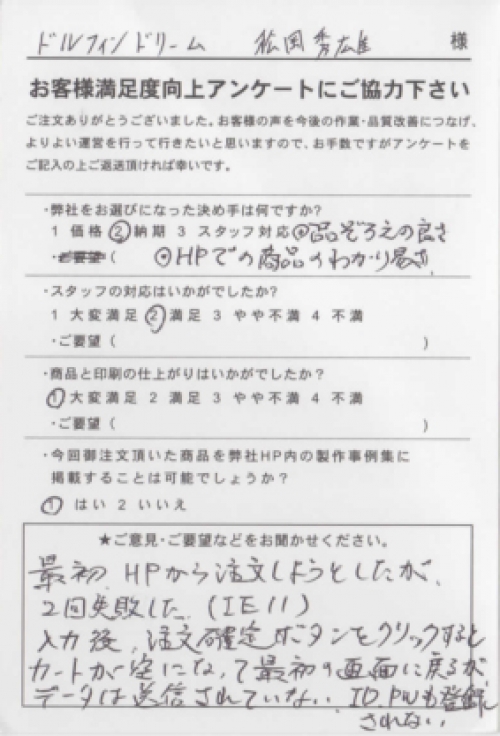 ドルフィンドリーム 松岡秀雄 様
お客様満足度向上アンケートにご協力下さい
ご注文ありがとうございました。お客様の声を今後の作業・品質改善につなげ、
よりよい運営を行って行きたいと思いますので、お手数ですがアンケートを
ご記入の上ご返送頂ければ幸いです。
・弊社をお選びになった決め手は何ですか?
1 価格 ② 納期 3 スタッフ対応 ⊙品ぞろえの良さ
・ ( ⊙HPでの商品のわかり易さ
・スタッフの対応はいかがでしたか?
1 大変満足 ② 満足 3 やや不満 4 不満
・ご要望 ( )
・商品と印刷の仕上がりはいかがでしたか?
① 大変満足 2 満足 3 やや不満 4 不満
・ご要望 ( )
・今回御注文頂いた商品を弊社HP内の製作事例集に
掲載することは可能でしょうか?
① はい 2 いいえ
★ご意見・ご要望などをお聞かせください。
最初、HPから注文しようとしたが、
2回失敗した。(IE11)
入力後、注文確定ボタンをクリックすると
カートが空になって最初の画面に戻るが
データは送信されていない。ID、PWも登録
されない